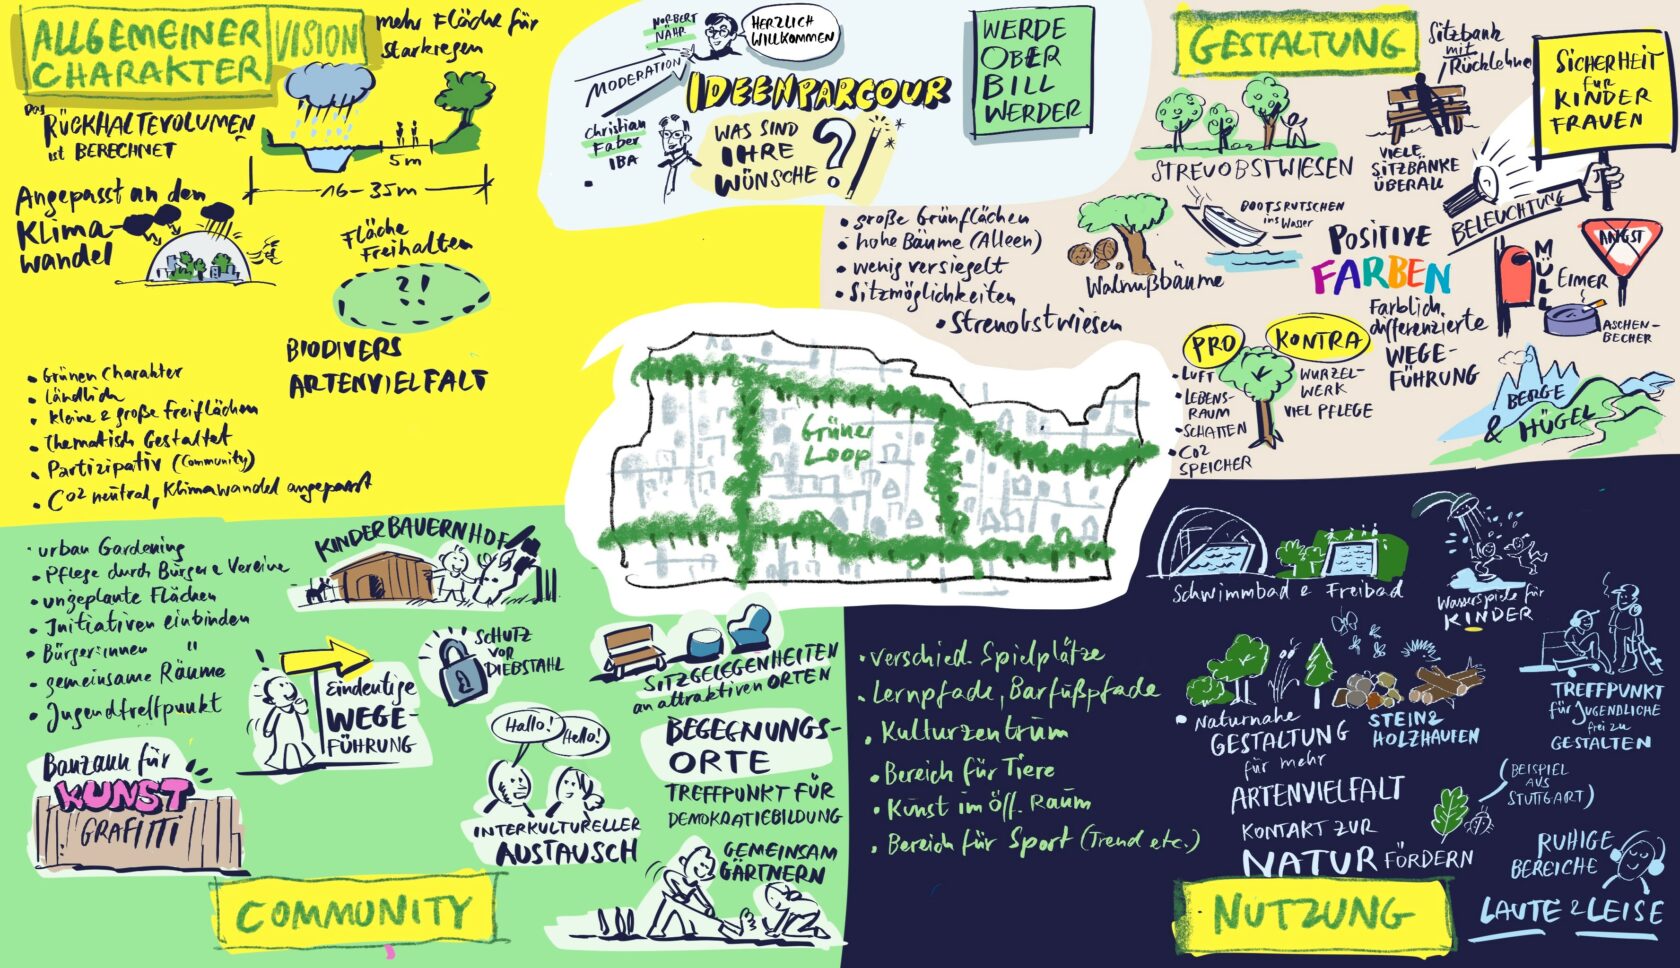 ALLGEMEINER
CHARAKTER
VISION
mehr Fläche für
Starkregen
Das
RÜCKHALTEVOLUMEN
ist BERECHNET
5m
16-35m
Angepasst an den
Klima-
wandel
Fläche
Freihalten
?!
BIODIVERS
ARTENVIELFALT
• Grünen Charakter
• Ländlich
• kleine & große Freiflächen
• Thematisch Gestaltet
• Partizipativ (Community)
• CO2 neutral, Klimawandel angepasst
NORBERT
NÄHR
HERZLICH
WILLKOMMEN
MODERATION
IDEENPARCOUR
Christian
Faber
IBA
WAS SIND
IHRE
WÜNSCHE
?!
WERDE
OBER
BILL
WERDER
GESTALTUNG
Sitzbank
mit
Rücklehne
SICHERHEIT
für
KINDER
FRAUEN
STREUOBSTWIESEN
VIELE
SITZBÄNKE
ÜBERALL
BELEUCHTUNG
• große Grünflächen
• hohe Bäume (Alleen)
• wenig versiegelt
• Sitzmöglichkeiten
• Streuobstwiesen
Walnußbäume
BOOTSRUTSCHEN
ins Wasser
POSITIVE
FARBEN
Farblich
differenzierte
WEGE-
FÜHRUNG
MÜLL
EIMER
ANGST
ASCHEN-
BECHER
PRO
KONTRA
• LUFT
• LEBENS-
RAUM
• SCHATTEN
• CO2
SPEICHER
WURZEL-
WERK
VIEL PFLEGE
BERGE
& HÜGEL
Grüner
Loop
• urban Gardening
• Pflege durch Bürger & Vereine
• ungeplante Flächen
• Initiativen einbinden
• Bürger:innen "
• gemeinsame Räume
• Jugendtreffpunkt
KINDERBAUERNHOF
Eindeutige
WEGE-
FÜHRUNG
SCHUTZ
VOR
DIEBSTAHL
SITZGELEGENHEITEN
an attraktiven ORTEN
Bauzaun für
KUNST
GRAFITTI
Hallo!
Hello!
INTERKULTURELLER
AUSTAUSCH
BEGEGNUNGS-
ORTE
TREFFPUNKT FÜR
DEMOKRATIEBILDUNG
GEMEINSAM
GÄRTNERN
COMMUNITY
• verschied. Spielplätze
• Lernpfade, Barfußpfade
• Kulturzentrum
• Bereich für Tiere
• Kunst im öff. Raum
• Bereich für Sport (Trend etc.)
Schwimmbad & Freibad
Wasserspiele für
KINDER
• Naturnahe
GESTALTUNG
für mehr
ARTENVIELFALT
STEIN &
HOLZHAUFEN
TREFFPUNKT
für JUGENDLICHE
frei zu
GESTALTEN
(BEISPIEL
AUS
STUTTGART)
KONTAKT ZUR
NATUR FÖRDERN
RUHIGE
BEREICHE
LAUTE & LEISE
NUTZUNG